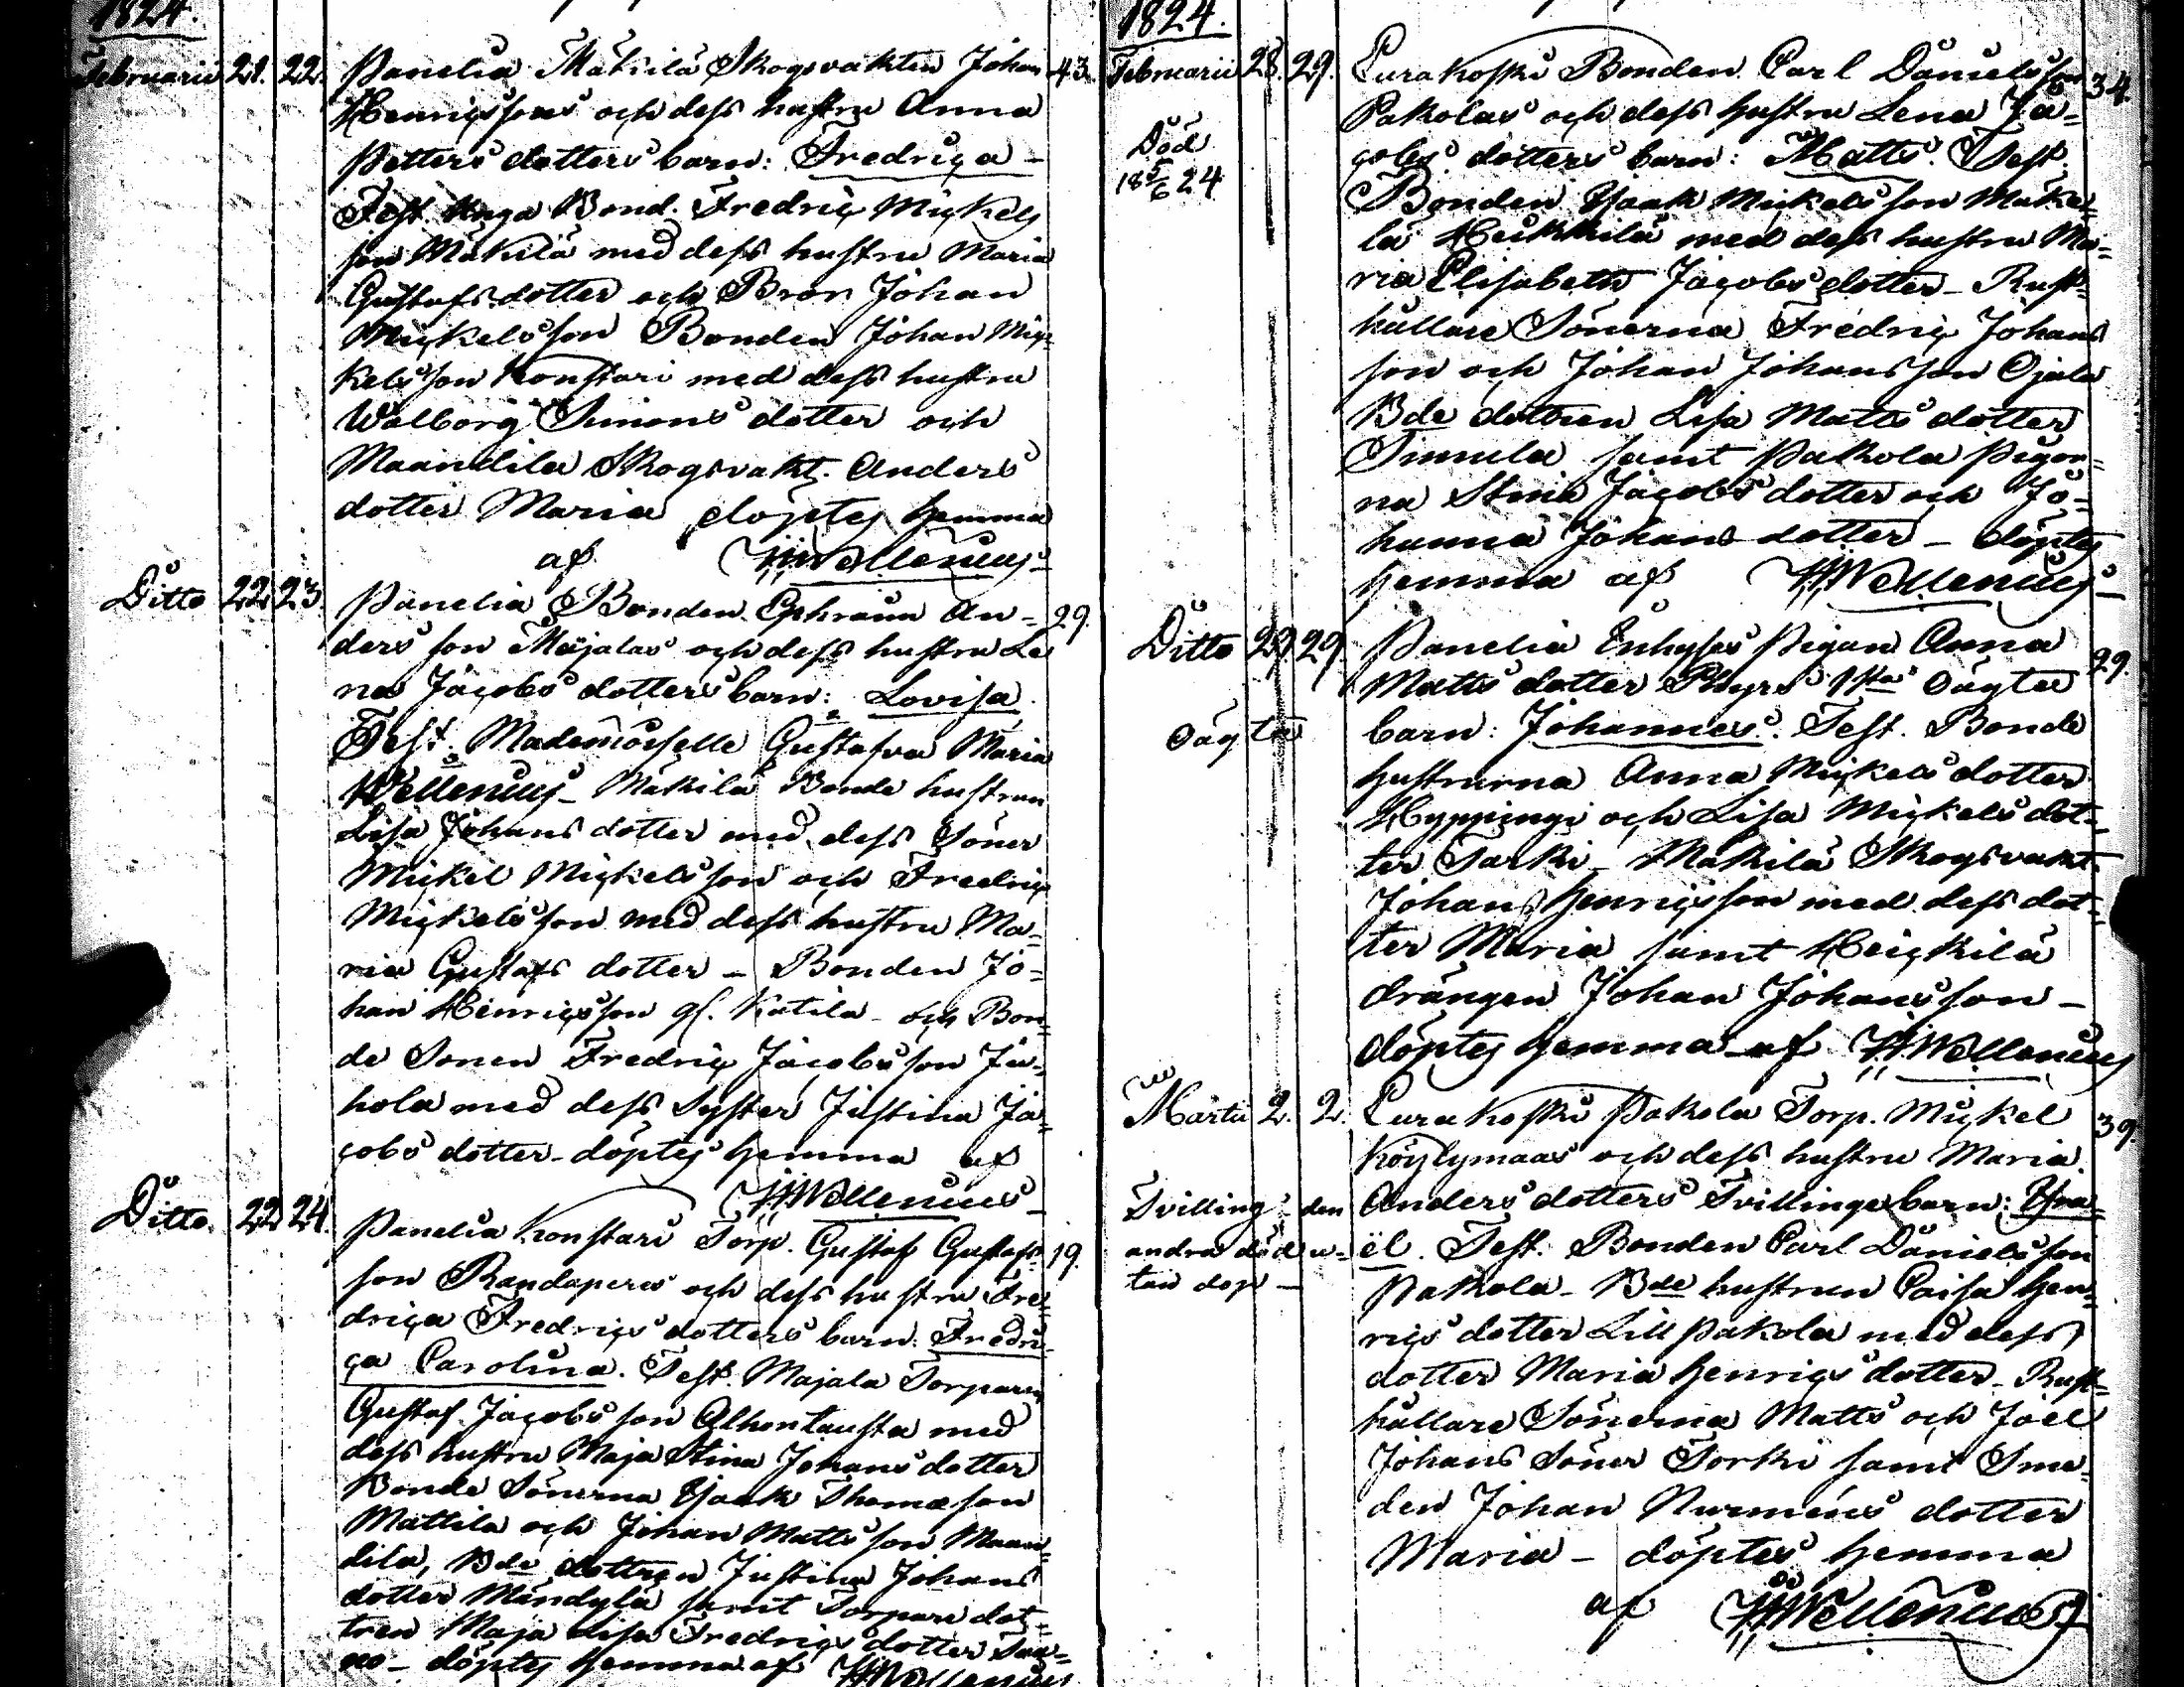 1824.
Februarii 21. 22. Panelia Mäkilä Skogsvakten Johan 43.
Henrigssons och dess hustru Anna
Petters dotters barn: Fredriça –
Test. Unga Bond. Fredriç Miçkels
son Mäkilä med dess hustru Maria
Gustafs dotter och Bror Johan
Miçkelsson Bonden Johan Miç-
kelsson Konstari med dess hustru
Walborg Simons dotter och
Maandila Skogsvakt. Anders
dotter Maria döptes hemma
af HWellenius
Ditto 22 23. Panelia Bonden Ephraim An- 29.
ders son Majalas och dess hustru Le
na Jaçobs dotters barn: Lovisa.
Test. Mademoiselle Gustafva Maria
Wellenius – Mäkilä Bonde hustrun
Lisa Johans dotter med dess Söner
Miçkel Miçkelsson och Fredriç
Miçkelsson med dess hustru Ma-
ria Gustafs dotter – Bonden Jo-
han Henriçsson gl. Katila – och Bon-
de Sonen Fredriç Jaçobsson Ju-
hola med dess Syster Justina Ja-
çobs dotter – döptes hemma af
HWellenius –
Ditto. 22 24. Panelia Konstari Torp. Gustaf Gustafs- 19.
son Randaperes och dess hustru Fre-
driça Fredriçs dotters barn. Fredri-
ça Carolina. Test. Majala Torparen
Gustaf Jaçobsson Alhontausta med
dess hustru Maja Stina Johans dotter
Bonde Sönerna Ysaak Thomasson
Mattila och Johan Mattsson Maan-
dila, Bde dottren Justina Johans
dotter Mändylä samt Torpare dot-
tren Maja Lisa Fredriçs dotter
– döptes hemma af HWellenius
1824.
Februarii 28. 29. Eurakoski Bonden Carl Danielsson 34.
Pakolas och dess hustru Lena Ja-
Död çobs dotters barn: Matts. Test.
18 5/6 24 Bonden Ysaak Miçkelsson Mäke-
lä Heikkilä med dess hustru Ma-
ria Elisabeth Jaçobs dotter – Rust-
hållare Sönerna Fredriç Johans
son och Johan Johansson Ojala
Bde dottren Lisa Matts dotter
Simula samt Pakola pigor-
na Stina Jaçobs dotter och Jo-
hanna Johans dotter – döptes
hemma af HWellenius –
Ditto 29. 29. Panelia Enhyses Pigan Anna 29.
Matts dotter 1sta Oägta
Oägta barn: Johannes. Test. Bonde
hustrurna Anna Miçkels dotter
Hyppingi och Lisa Miçkels dot-
ter Sarki – Mäkilä Skogsvakt.
Johan Henriçsson med dess dot-
ter Maria samt Heiçkilä
drängen Johan Johansson –
döptes hemma af HWellenius
Martii 2. 2. Eurakoski Pakola Torp. Miçkel 39.
Köylymaas och dess hustru Maria
Tvilling – den Anders dotters Tvillinge barn: Ysra-
andra död u- ël. Test. Bonden Carl Danielsson
tan dop – Pakola – Bde hustrun Caisa Hen-
rigs dotter Lill Pakola med dess
dotter Maria Henrigs dotter – Rust-
hållare Sönerna Matts och Joel
Johans Söner Sorki samt Sme-
den Johan Nurmines dotter
Maria – döptes hemma
af HWellenius